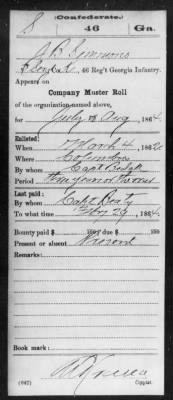 S (Confederate.) 46 Ga.
J. B. Simmons
46 Reg't Georgia Infantry.
Appears on
Company Muster Roll
of the organization named above,
for July & Aug, 1864.
Enlisted:
When March 4, 186
Where Columbus
By whom Capt
Period
Last paid:
By whom Capt Beaty
To what time Feby 29, 1864.
Bounty paid $ 100; due $ 100
Present or absent Present
Remarks:
Book mark:
(642) Copyist.